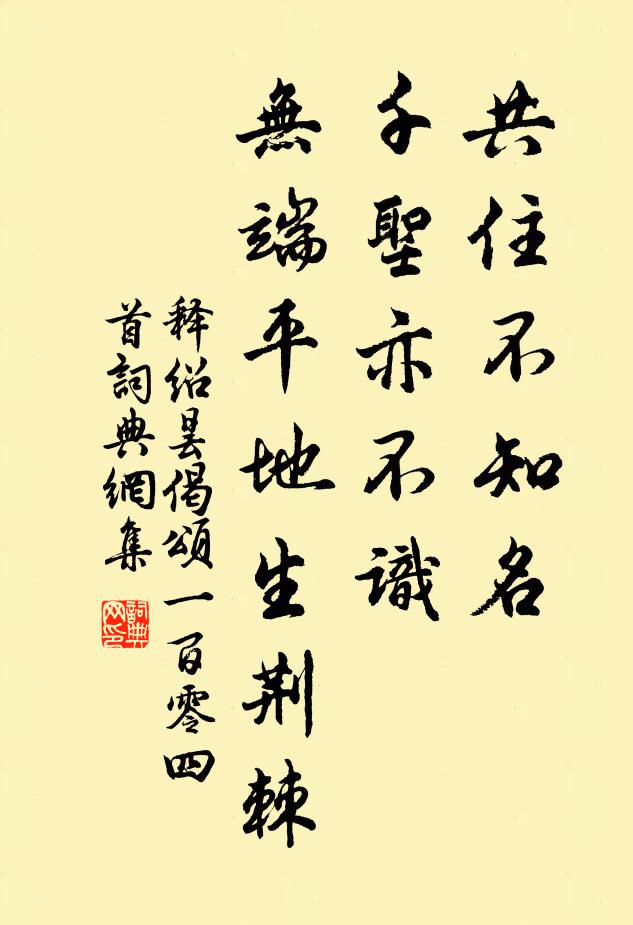 共住不知名
千聖亦不識
無端平地生荆棘
释绍昙偈頌一百零四
首詞典網集
詞典网印